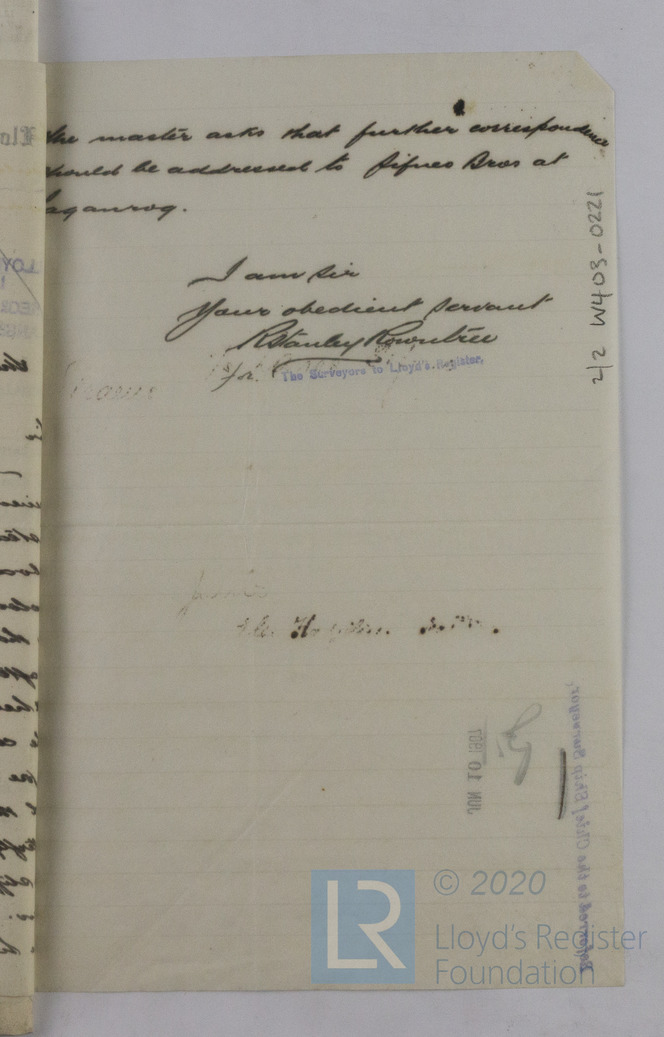 the master asks that further correspondence
should be addressed to Sifneo Bros at
Taganrog.
I am sir
Your obedient servant
R Stanley Rowntree
for The Surveyors to Lloyd's Register.
2/2 W403-0221
JUN 10 1897
Referred to the Chief Ship Surveyor.
LR
© 2020
Lloyd's Register
Foundation